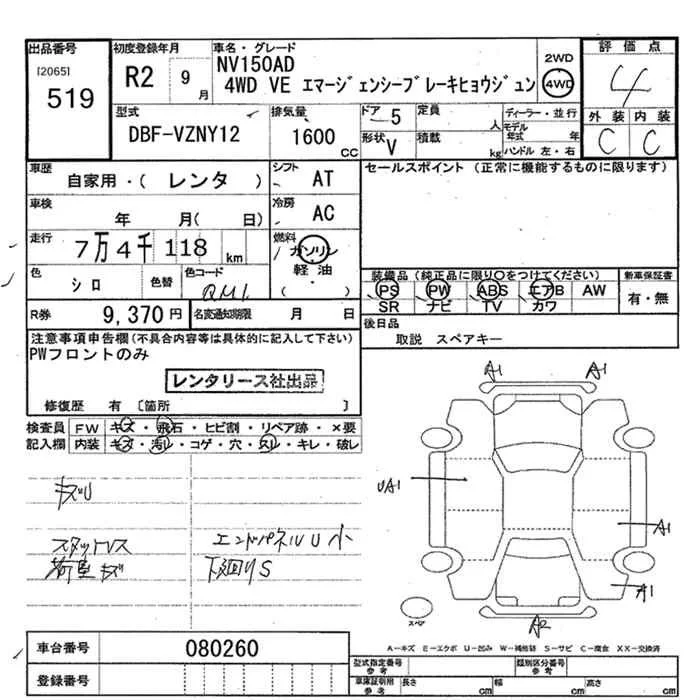 出品番号
[2065]
519
初度登録年月
R2 9月
車名・グレード
NV150AD
4WD VE エマージェンシーブレーキヒョウジュン
2WD
4WD
評価点
4
外装 内装
C C
型式
DBF-VZNY12
排気量
1600 CC
ドア 5
形状 V
定員 人
積載 kg
ディーラー・並行
モデル年式 年
ハンドル 左・右
車歴
自家用・( レンタ )
シフト
AT
車検
年 月( 日)
冷房
AC
走行
7万4千118 km
燃料
ガソリン
軽油
( )
色
シロ
色替
色コード
QM1
R券
9,370円
名変通知期限 月 日
セールスポイント (正常に機能するものに限ります)
装備品 (純正品に限り○をつけてください)
PS PW ABS エアB AW
SR ナビ TV カワ
新車保証書
有・無
後日品
取説 スペアキー
注意事項申告欄(不具合内容等は具体的に記入して下さい)
PWフロントのみ
レンタリース社出品
修復歴 有 [箇所 ]
検査員 FW キズ・飛石・ヒビ割・リペア跡・×要
記入欄 内装 キズ・汚レ・コゲ・穴・スレ・キレ・破レ
キズU
スタットレス
荷室キズ
エンドパネルU小
下廻りS
A1 A1
UA1
A1
A1
A2
スペア
A-キズ E-エクボ U-凹み W-補修跡 S-サビ C-腐食 XX-交換済
車台番号
080260
登録番号
型式指定番号
参考
類別区分番号
参考
車庫証明用
参考
長さ cm 幅 cm 高さ cm